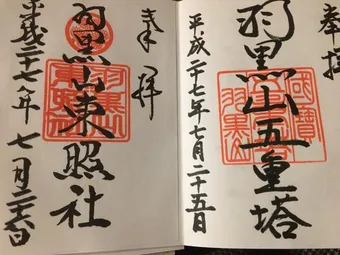 奉拝
羽黒山五重塔
平成二十七年七月二十五日
奉拝
羽黒山東照社
平成二十七年七月二十五日